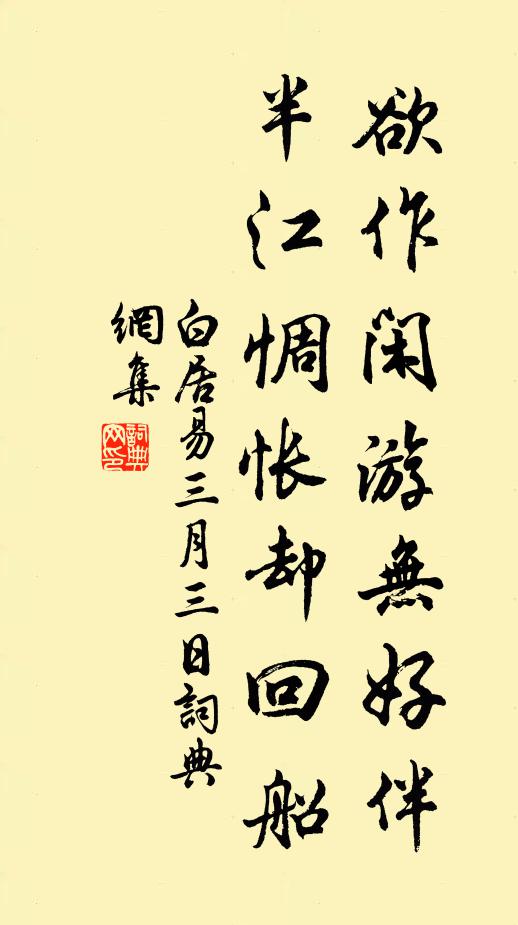 欲作闲游無好伴
半江惆怅却回船
白居易三月三日詞典
網集
詞典
网印